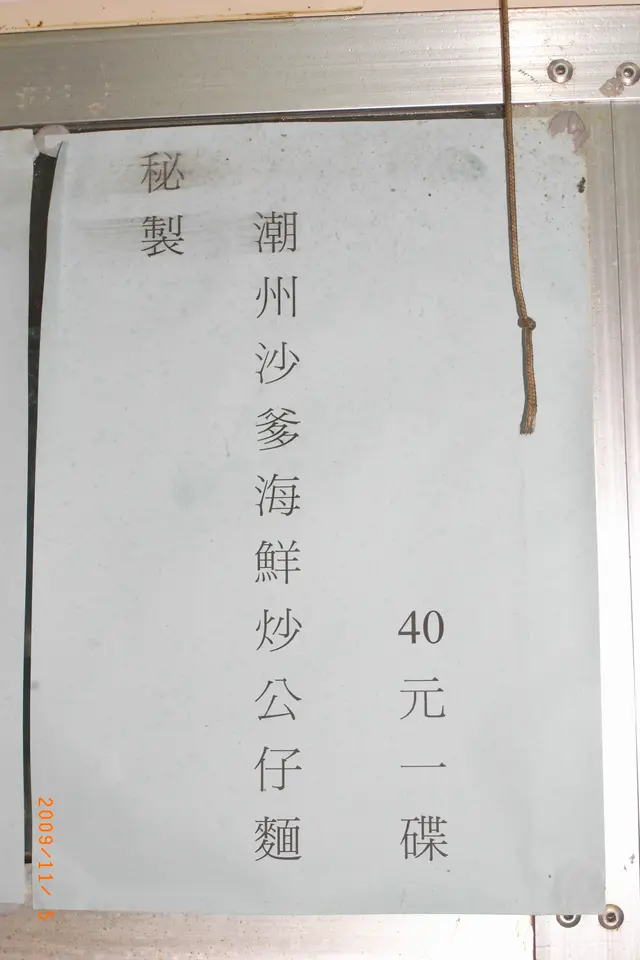 秘製
潮州沙爹海鮮炒公仔麵
40元一碟
2009/11/ 5